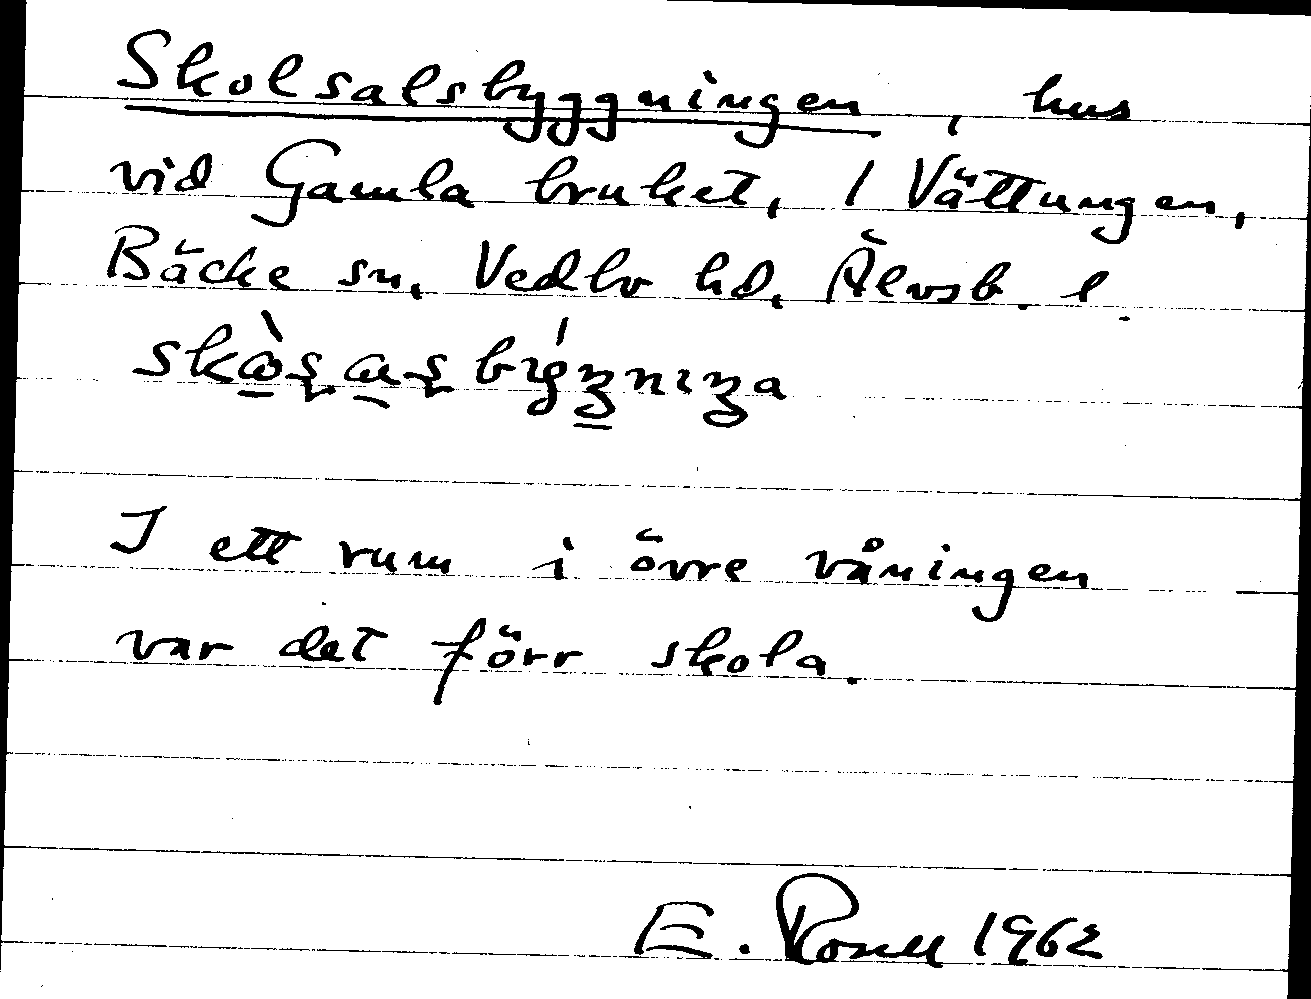 Skolsalsbyggningen, hus
vid Gamla bruket, 1 Vättungen,
Bäcke sn. Vedbo hd, Älvsb. l.
I ett rum i övre våningen
var det förr skola.
E. Rosell 1962